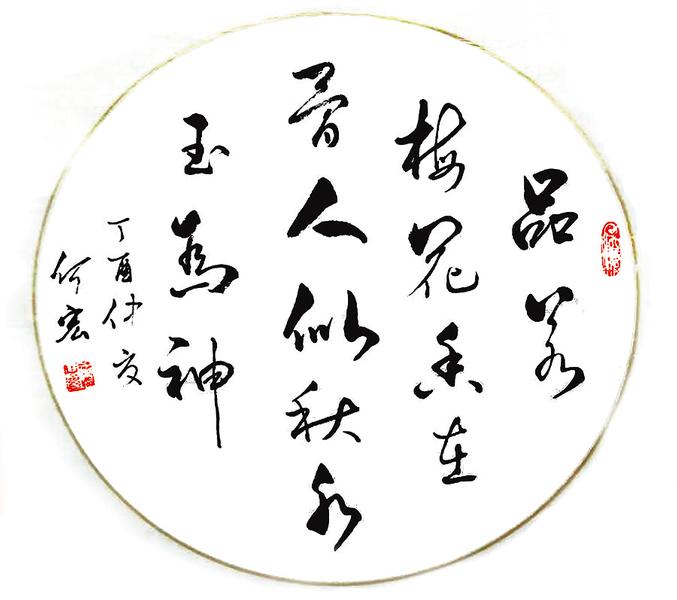 品若
梅花香在
骨人似秋水
玉為神
丁酉仲夏
何宏